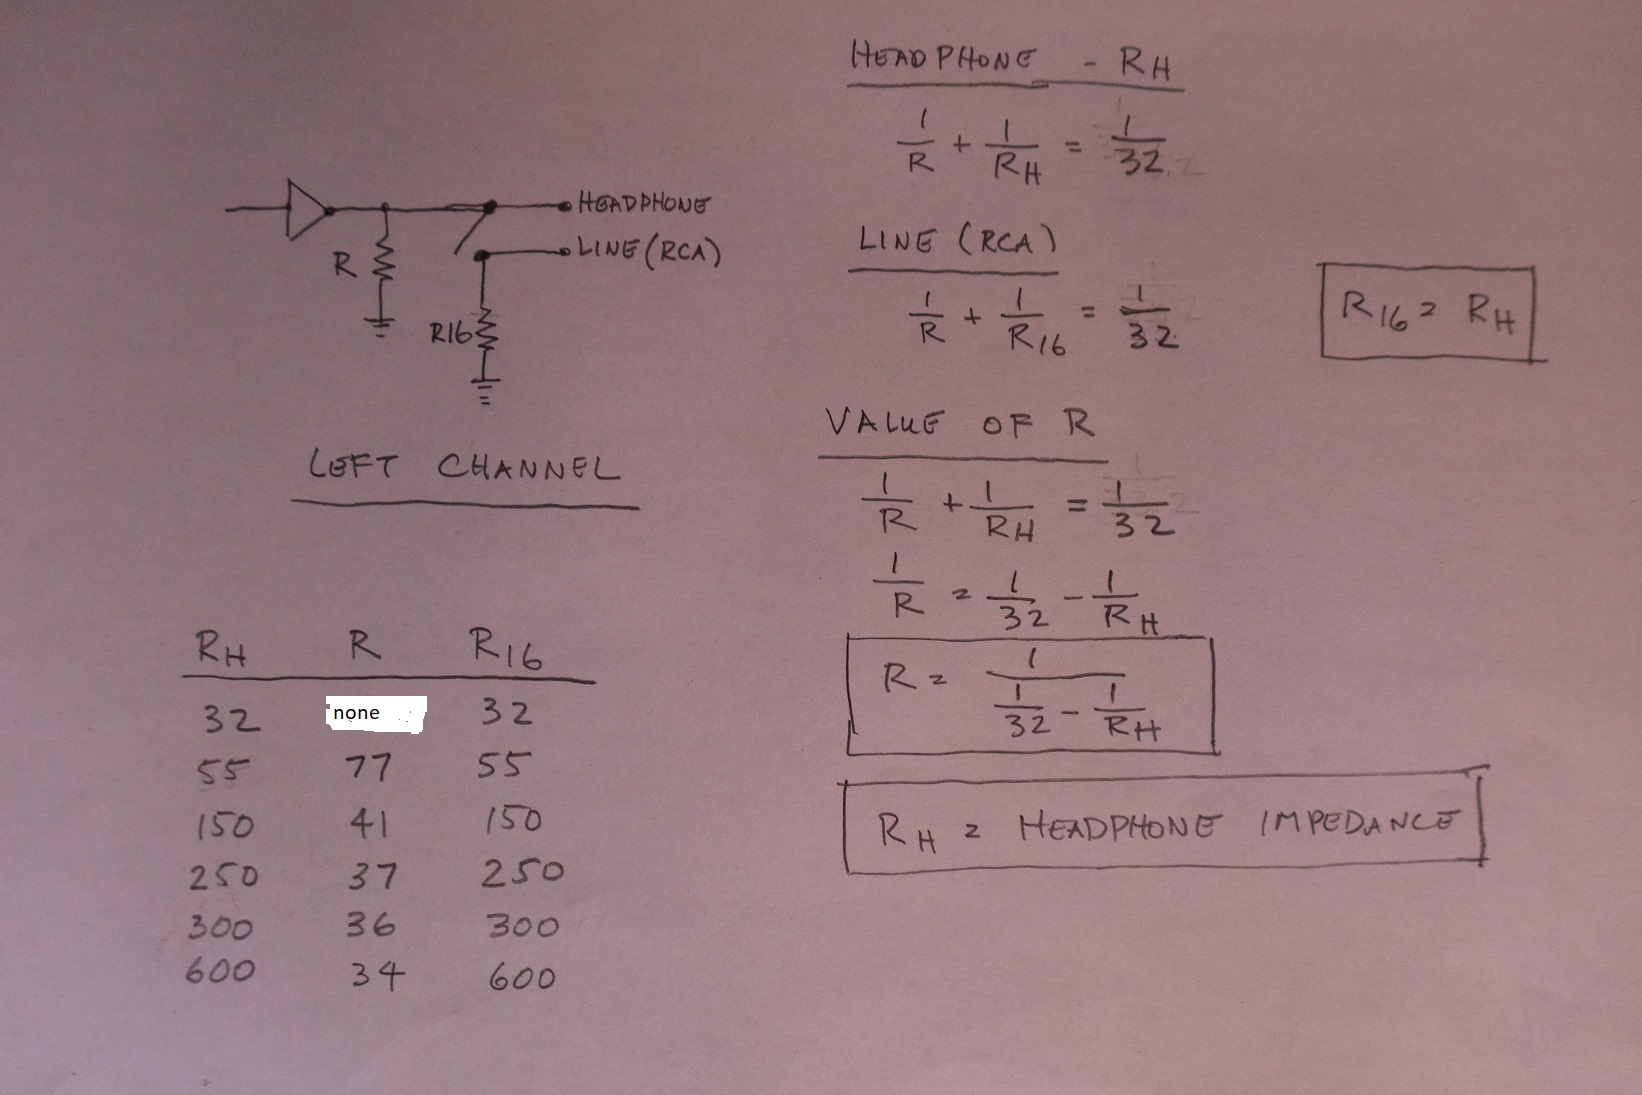 HEADPHONE
LINE (RCA)
R
R16
LEFT CHANNEL
RH R R16
32 none 32
55 77 55
150 41 150
250 37 250
300 36 300
600 34 600
HEADPHONE - RH
1/R + 1/RH = 1/32
LINE (RCA)
1/R + 1/R16 = 1/32
R16 = RH
VALUE OF R
1/R + 1/RH = 1/32
1/R = 1/32 - 1/RH
R = 1/(1/32 - 1/RH)
RH = HEADPHONE IMPEDANCE